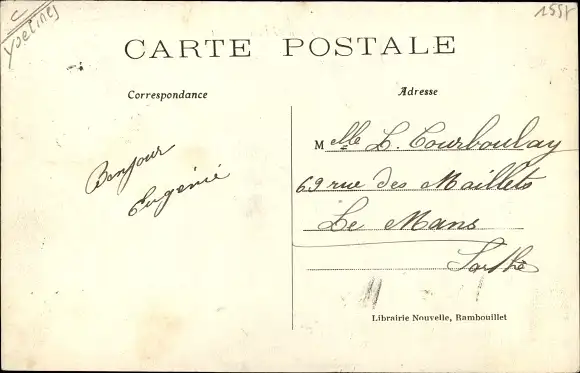 C
Yvelines
1558
CARTE POSTALE
Correspondance
Adresse
Bonjour
Eugénie
Mlle L. Courboulay
69 rue des Maillets
Le Mans
Sarthe
Librairie Nouvelle, Rambouillet